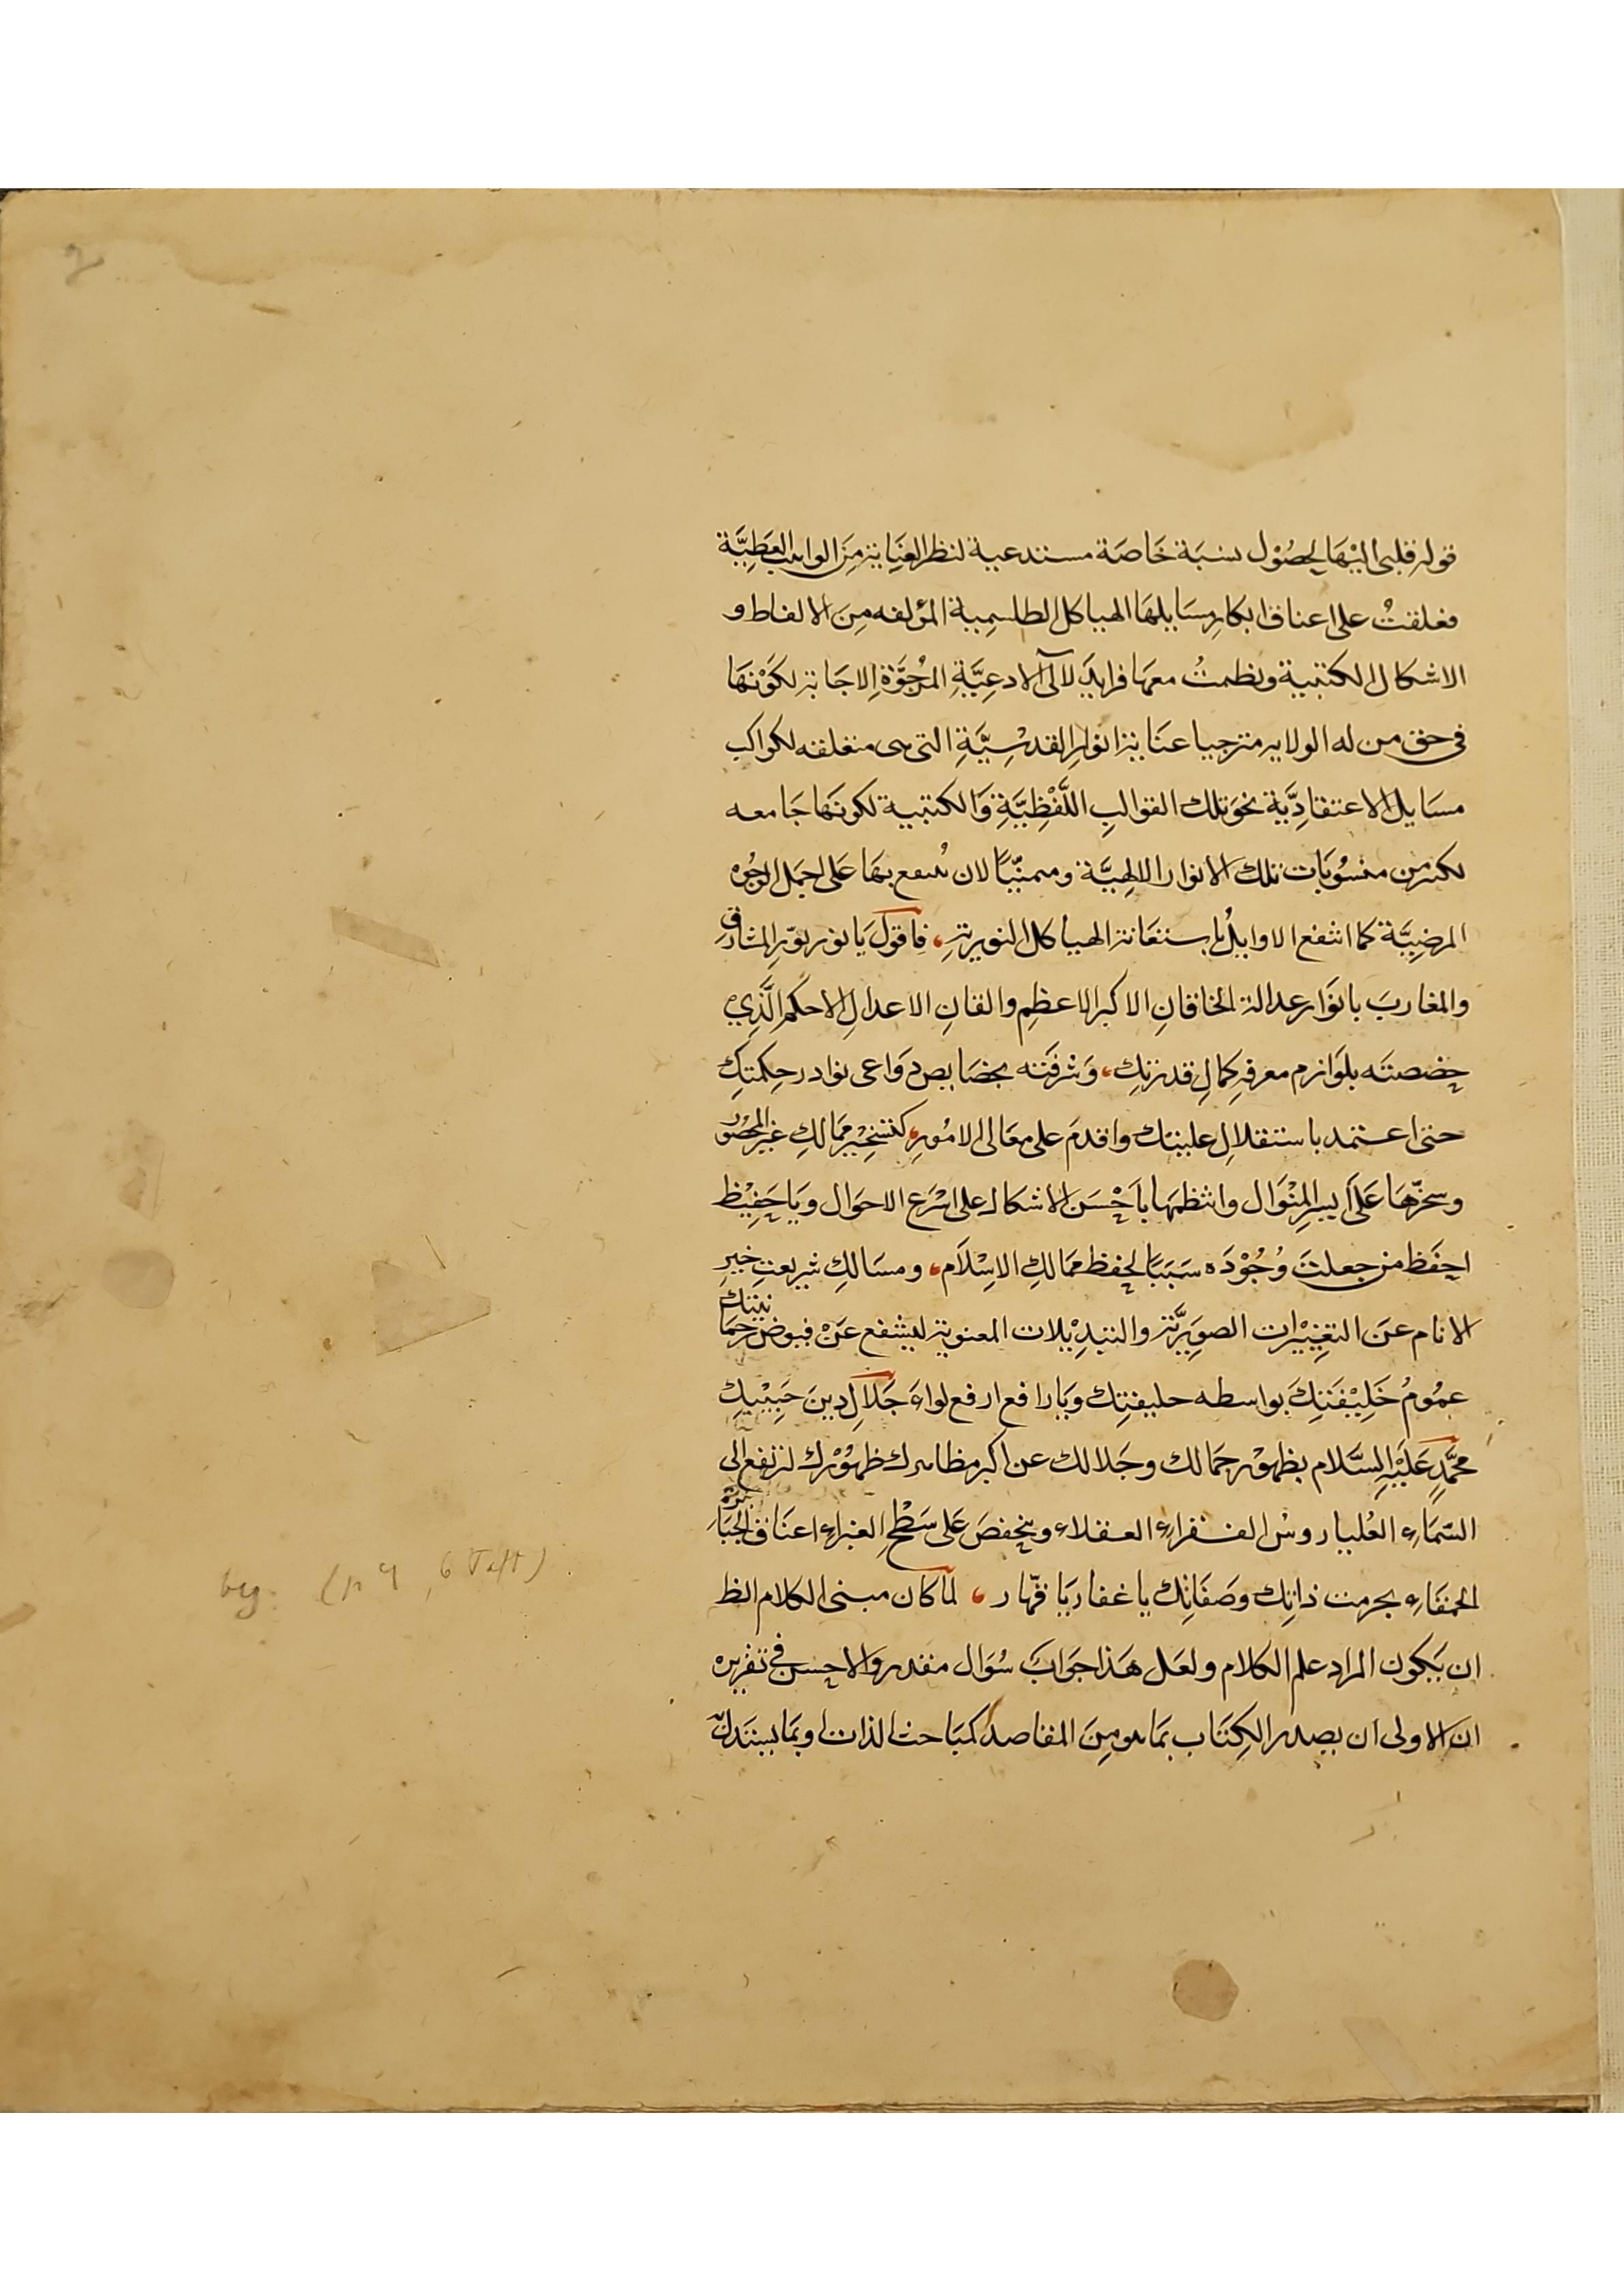 قوله قلبى اليْهَا لحصُوْل نسبَة خَاصَة مستدعية لنظر العنَايةِ مِنَ الواهب العَطِيَّة
فعلقتُ على اعناق ابكارِ مسَايلهَا الهياكل الطلسمِية المؤلفه مِنَ الالفاط و
الاشكال الكتبية ونظمتُ معهَا فرايدَ لالى الادعِيَّةِ المرجُوَّةِ الاجَابة لكَوْنهَا
فى حق من له الولايه مترجيا عنَاية انوارِ القدسِيَّةِ التى هى متعلقه لكواكب
مسَايل الاعتقادِيَّة نحوَ تلك القوالبِ اللَّفْظِيَّةِ وَالكتبية لكونهَا جَامعه
لكثير من منسُوبَات تلك الانوار الالهِيَّة ومتمنّيًا لان ينتفع بهَا عَلى اجمَل الوجُوه
المرضِيَّة كما انتفع الاوايلُ باستعَانة الهياكل النوريةِ، فاقولَ يَا نور نوّرِ المشارقِ
والمغاربَ بانوَار عدالة الخاقانِ الاكبر الاعظمِ والقانِ الاعدلِ الاحكمِ الَّذِي
خصصتَه بلوَازم معرفةِ كمالِ قدرتِكِ، وَشرفتَه بخصَايص دَواعى نوادر حِكمتِكِ
حتى اعتمد باستقلالِ علينتك واقدمَ على معَالى الامُورِ، كتسْخِيْرِ ممَالكِ غيرِ المحصُور
وسخّرهَا عَلَى ايسرِ المِنْوَال وانتظمهَا باَحْسَن الاشكال على اسْرَع الاحوَال ويَا حَفِيْظ
احفَظ من جعلتَ وُجُوْدَه سَبَبًا لحفظ ممَالكِ الاِسْلَام، ومسَالكِ شريعتِ خيرِ
الانام عنَ التغِييْرات الصوَرِيَّة والتبدِيْلات المعنوية ليشفع عَنْ فيوض رحمَانيتك
عمُومُ خَلِيْقَتِكَ بواسطه خليفتِك ويَا رافع ارفع لواءَ جَلَالِ دين حَبِيْبِكِ
محمَّدٍ عَلَيْهِ السَّلام بظهوْر جمَالك وجَلالك عن اكبر مظاهرك ظهُوْرك لترتفع الى
السّمَاءِ العُليا روسُ الفقراءِ العقلاء وينخفضَ عَلى سَطْحِ الغبراءِ اعنَاق الجَبَابرة
الحمقَاءِ بحرمت ذاتِك وصَفَاتِك يا غفار يَا قهّار ، لما كان مبنى الكلام الظ
ان يَكون المراد علم الكلام ولعَل هَذا جوَابَ سُوَال مقدر والاحسن فى تقريره
ان الاولى ان يصدر الكِتَاب بمَا هو مِنَ المقاصد كمبَاحث الذات وبمَا يستدل
beg. (p 4, 6 Taft)